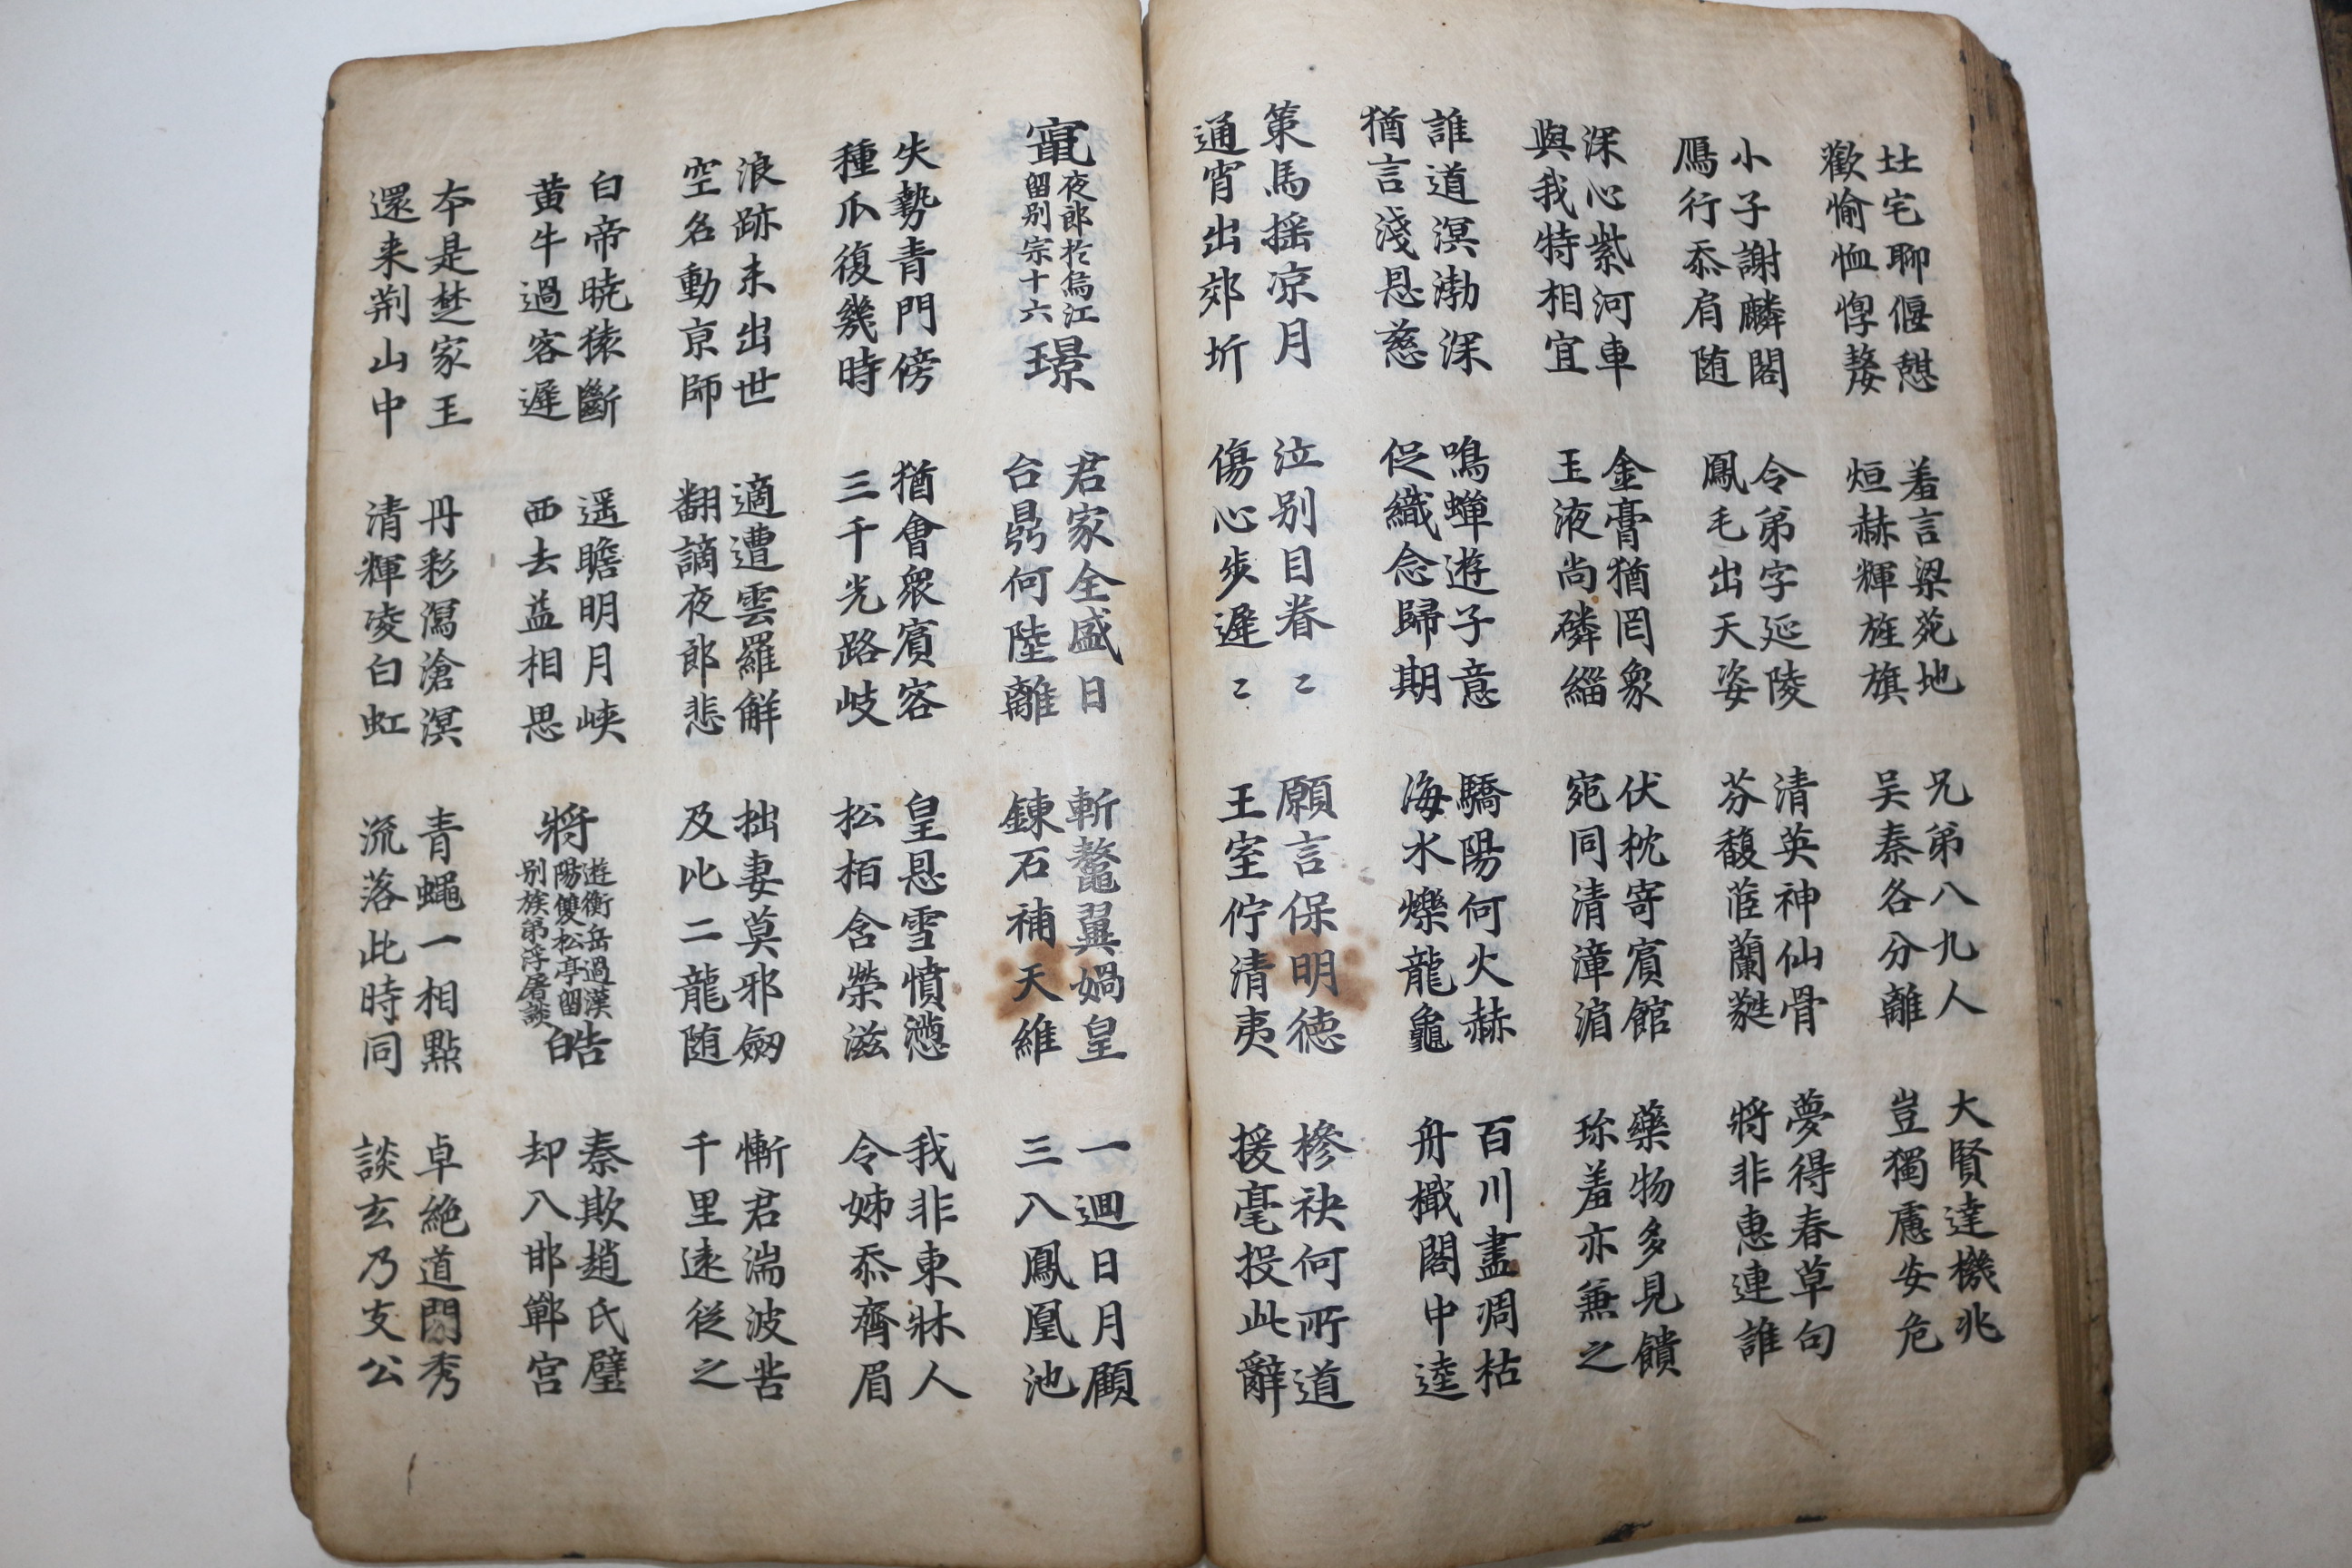 圡宅聊偃憩
歡愉恤惸嫠
羞言梁苑地
烜赫輝旌旗
兄弟八九人
吴秦各分離
大賢達機兆
豈獨慮安危
小子謝麟閣
鴈行忝肩随
令弟字延陵
鳳毛出天姿
清英神仙骨
芬馥茝蘭蕤
夢得春草句
將非惠連誰
深心紫河車
與我特相宜
金膏猶罔象
玉液尚磷緇
伏枕寄賓館
宛同清漳湄
藥物多見饋
珎羞亦兼之
誰道溟渤深
猶言淺恩慈
鳴蟬遊子意
促織念歸期
驕陽何火赫
海水爍龍龜
百川盡凋枯
舟檝閣中逵
策馬揺凉月
通宵出郊圻
泣别目眷〻
傷心步遲〻
願言保明德
王室佇清夷
摻袂何所道
援毫投此辭
竄
夜郎於烏江
留别宗十六
璟
君家全盛日
台鼎何陸離
斬鼇翼媧皇
鍊石補天維
一迴日月顧
三八鳳凰池
失勢青門傍
種瓜復幾時
猶會衆賓客
三千光路歧
皇恩雪憤懑
松栢含榮滋
我非東牀人
令姊忝齊眉
浪跡未出世
空名動京師
適遭雲羅解
翻謫夜郎悲
拙妻莫邪劒
及比二龍随
慚君湍波苦
千里遠從之
白帝曉猿斷
黄牛過客遲
遥瞻明月峡
西去益相思
將
遊衡岳過漢
陽雙松亭留
别族弟浮屠談
皓
秦欺趙氏璧
却入邯鄲宫
本是楚家玉
還来荆山中
丹彩瀉滄溟
清輝凌白虹
青蠅一相點
流落此時同
卓絶道門秀
談玄乃支公